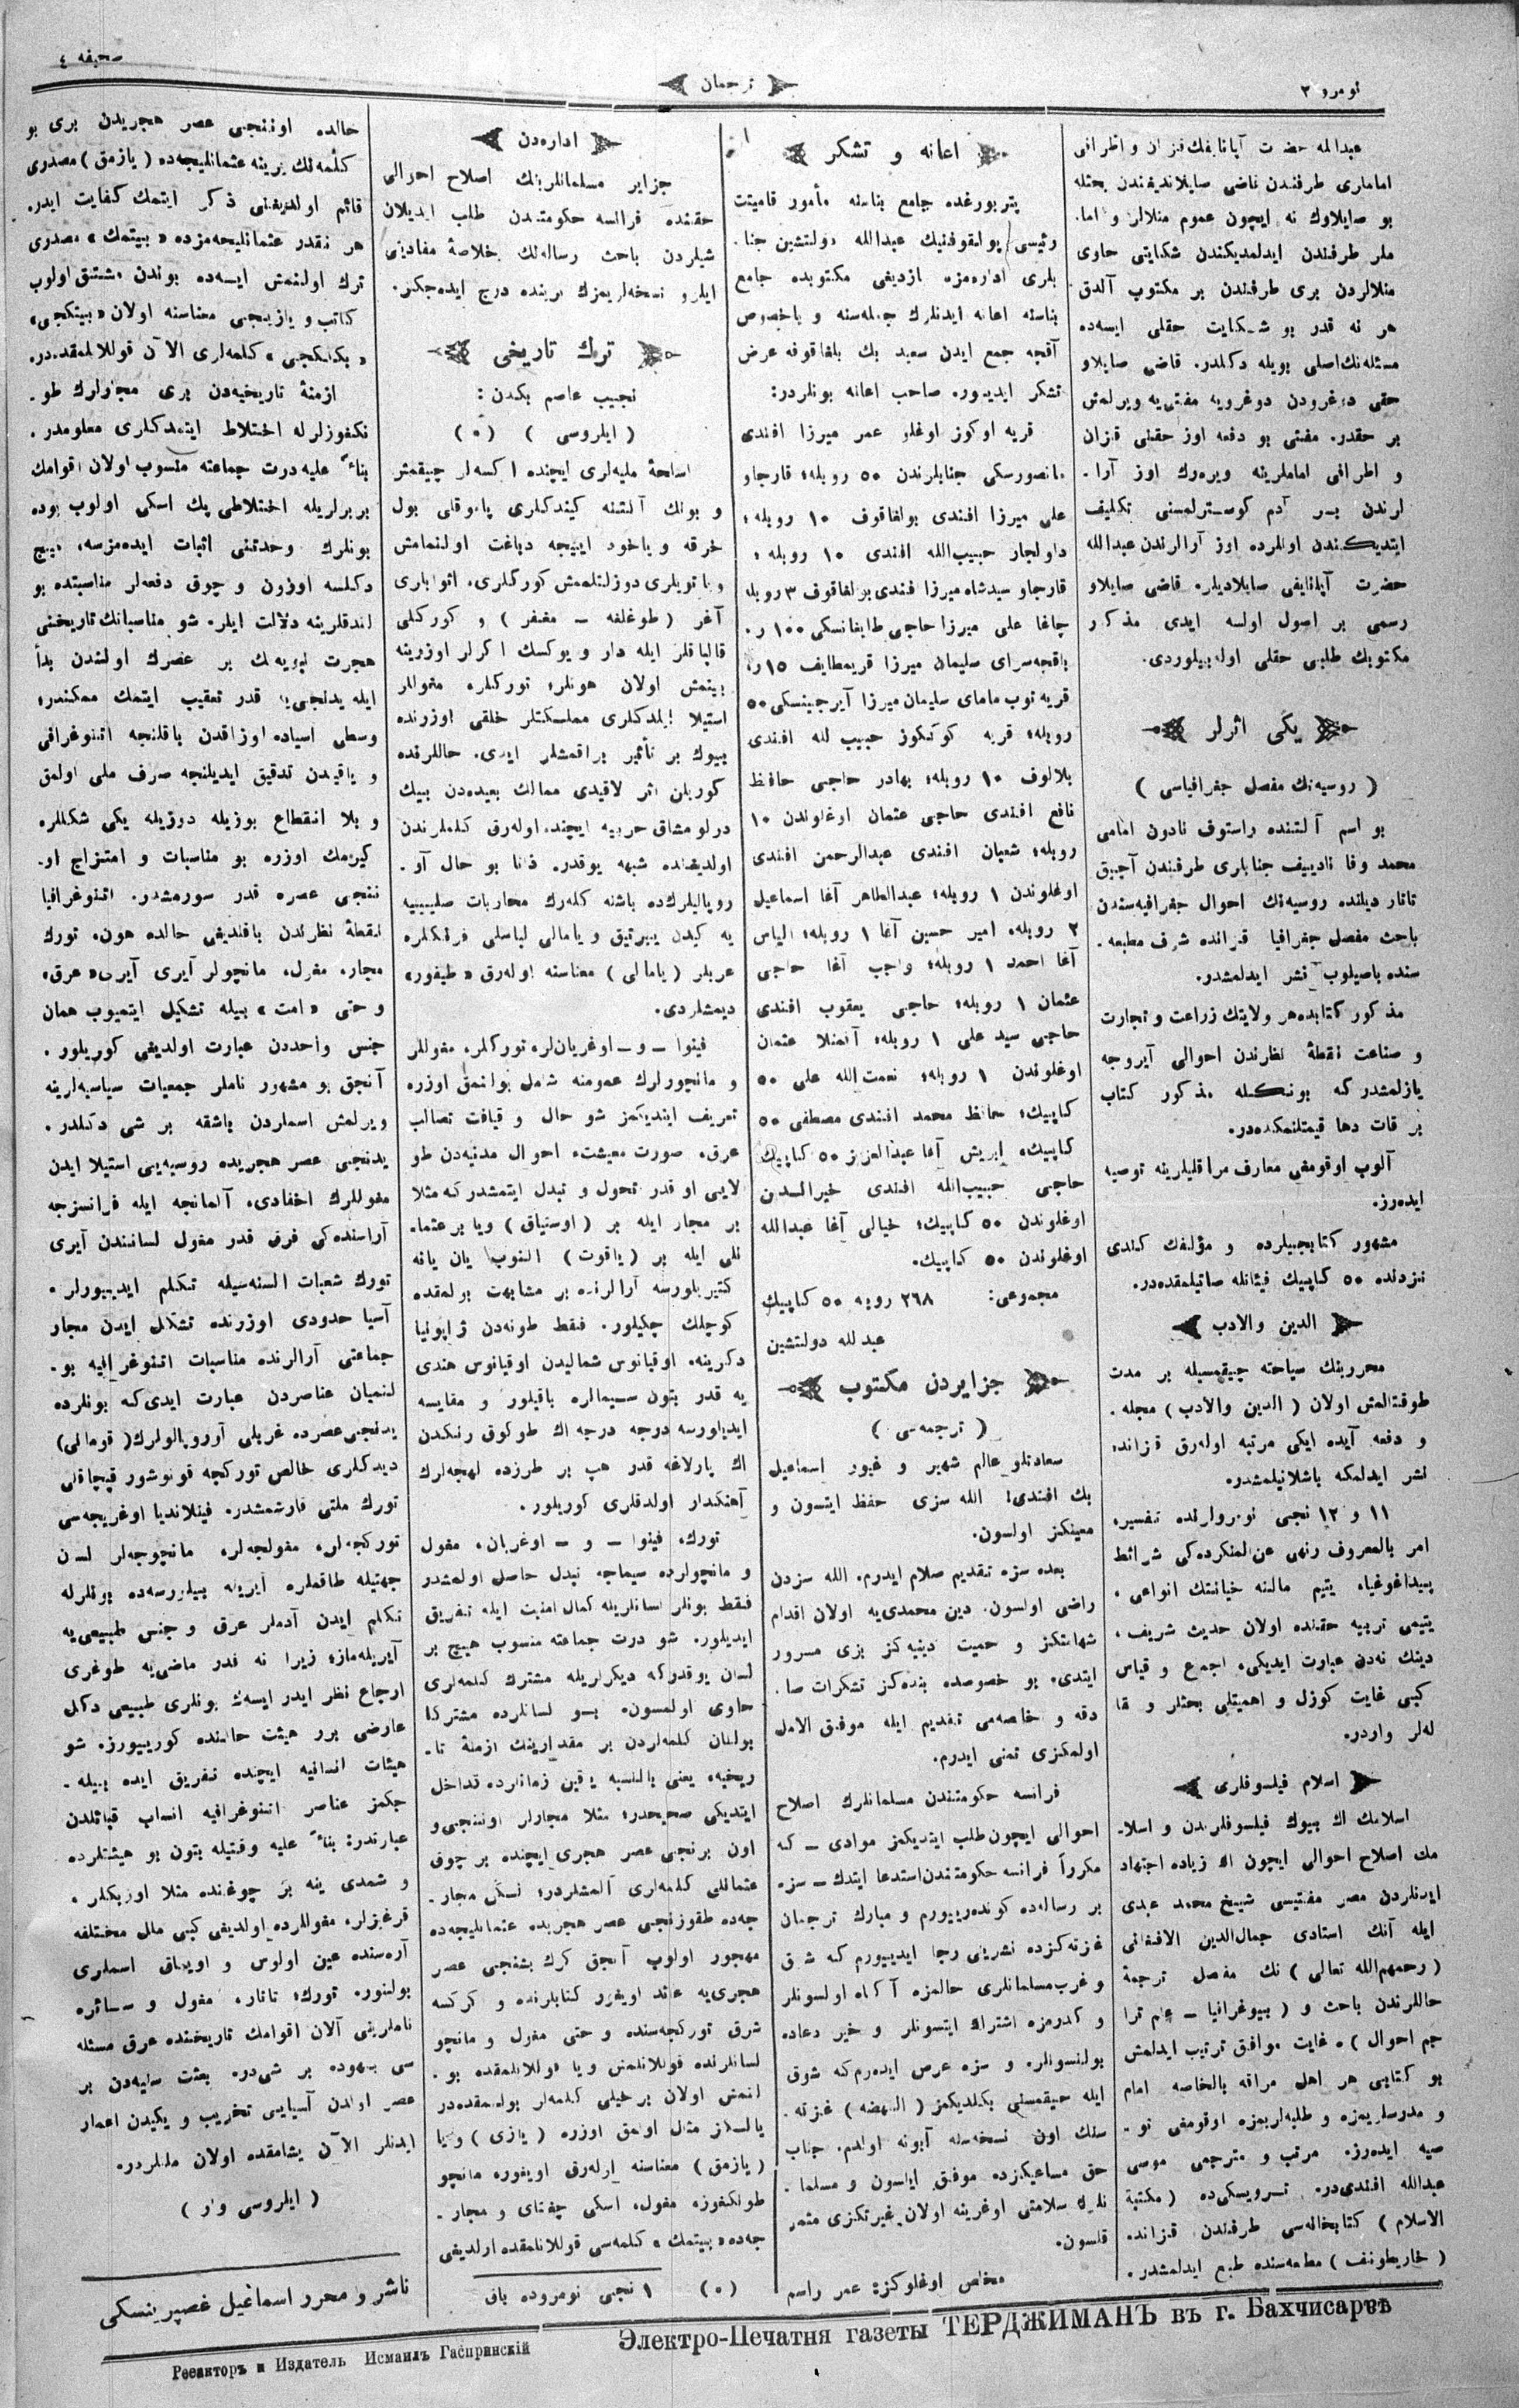 نومرو ٢
ترجمان
صحيفه ٤
عبدالله حضرت آپانايفك قزان و اطرافى
اماملرى طرفندن قاضى صايلانديغندن بحثله
بو صايلاوك نه ايچون عموم منلالر و اما.
ملر طرفندن ايدلمديكندن شكايتى حاوى
منلالردن برى طرفندن بر مكتوب آلدق
هر نه قدر بو شكايت حقلى ايسه‌ده
مسئله‌نك اصلى بويله دكلدر. قاضى صايلاو
حقى دوغرودن دوغرويه مفتى‌يه ويرلمش
بر حقدر. مفتى بو دفعه اوز حقنى قزان
و اطرافى اماملرينه ويره‌رك اوز آرا.
لرندن بر آدم كوسترلمسنى تكليف
ايتديكندن اونلرده اوز آرالرندن عبدالله
حضرت آپانايفى صايلاديلر. قاضى صايلاو
رسمى بر اصول اولسه ايدى مذكور
مكتوبك طلبى حقلى اوله‌بيلوردى.
يكى اثرلر
( روسيه‌نك مفصل جغرافياسى )
بو اسم آلتنده راستوف نادون امامى
محمد وفا نادييف جنابلرى طرفندن آچيق
تاتار ديلنده روسيه‌نك احوال جغرافيه‌سندن
باحث مفصل جغرافيا قزانده شرف مطبعه.
سنده باصيلوب نشر ايدلمشدر.
مذكور كتابده هر ولايتك زراعت و تجارت
و صناعت نقطۀ نظرندن احوالى آيروجه
يازلمشدر كه بونكله مذكور كتاب
بر قات دها قيمتلنمكده‌در.
آلوب اوقومغى معارف مراقليلرينه توصيه
ايده‌رز.
مشهور كتابجيلرده و مؤلفك كندى
نزدنده ٥٠ كاپيك فيئاتله صاتيلمقده‌در.
الدين والادب
محررينك سياحته چيقمسيله بر مدت
طوقتالمش اولان ( الدين والادب ) مجله.
و دفعه آيده ايكى مرتبه اوله‌رق قزانده
نشر ايدلمكه باشلانيلمشدر.
١١ و ١٢ نجى نومرولرنده تفسير،
امر بالمعروف ونهى عن المنكرده‌كى شرائط
پيداغوغيا، يتيم مالنه خيانتك انواعى ،
يتيمى تربيه حقنده اولان حديث شريف ،
دينك نه‌دن عبارت ايديكى، اجماع و قياس
كبى غايت كوزل و اهميتلى بحثلر و مقا
له‌لر واردر.
اسلام فيلسوفلرى
اسلامك اك بيوك فيلسوفلرندن و اسلا-
مك اصلاح احوالى ايچون اك زياده اجتهاد
ايدنلردن مصر مفتيسى شيخ محمد عبدى
ايله آنك استادى جمال‌الدين الافغانى
( رحمهم‌الله تعالى ) نك مفصل ترجمۀ
حاللرندن باحث و ( بيوغرافيا – علم ترا
جم احوال ) ه غايت موافق ترتيب ايدلمش
بو كتابى هر اهل مراقه بالخاصه امام
و مدرسلريمزه و طلبه‌لريمزه اوقومغى تو-
صيه ايده‌رز. مرتب و مترجمى موسى
عبدالله افندى‌در. ترويسكى‌ده ( مكتبة
الاسلام ) كتابخانه‌سى طرفندن قزانده
( خاريطونف ) مطبعه‌سنده طبع ايدلمشدر.
اعانه و تشكر
پتربورغده جامع بناسنه مأمور قاميتت
رئيسى پولقوفنيك عبدالله دولتشين جنا.
بلرى اداره‌مزه يازديغى مكتوبده جامع
بناسنه اعانه ايدنلرك جمله‌سنه و باخصوص
آقچه جمع ايدن سعيد بك بلغاقوفه عرض
تشكر ايديور. صاحب اعانه بونلردر:
قريه اوكوز اوغلو عمر ميرزا افندى
مانصورسكى جنابلرندن ٥٠ روبله؛ قارجاو
على ميرزا افندى بولغاقوف ١٠ روبله ؛
داولجار حبيب‌الله افندى ١٠ روبله ؛
قارجاو سيدشاه ميرزا افندى بولغاقوف ٣ روبله
چاغا على ميرزا حاجى طايغانسكى ١٠٠ ر.
باقچه‌سراى سليمان ميرزا قريمطايف ١٥ ر؛
قريه توپ ماماى سليمان ميرزا آيرجينسكى ٥٠
روبله؛ قريه كوتكوز حبيب لله افندى
بلالوف ١٠ روبله؛ بهادر حاجى حافظ
نافع افندى حاجى عثمان اوغلوندن ١٠
روبله؛ شعبان افندى عبدالرحمن افندى
اوغلوندن ١ روبله؛ عبدالطاهر آغا اسماعيل
٢ روبله. امير حسين آغا ١ روبله؛ الياس
آغا احمد ١ روبله؛ واجب آغا حاجى
عثمان ١ روبله؛ حاجى يعقوب افندى
حاجى سيد على ١ روبله؛ آتمنلا عثمان
اوغلوندن ١ روبله؛ نعمت‌الله على ٥٠
كاپيك؛ حافظ محمد افندى مصطفى ٥٠
كاپيك، ابريش آغا عبدالعزيز ٥٠ كاپيك
حاجى حبيب‌الله افندى خيرالدين
اوغلوندن ٥٠ كاپيك؛ خيالى آغا عبدالله
اوغلوندن ٥٠ كاپيك.
مجموعى: ٢٦٨ روبه ٥٠ كاپيك
عبدلله دولتشين
جزايردن مكتوب
( ترجمه‌سى )
سعادتلو عالم شهير و غيور اسماعيل
بك افندى! الله سزى حفظ ايتسون و
معينكز اولسون.
بعده سزه تقديم سلام ايدرم. الله سزدن
راضى اولسون. دين محمدى‌يه اولان اقدام
شهامتكز و حميت دينيه‌كز بزى مسرور
ايتدى. بو خصوصده بنده‌كز تشكرات صا.
دقه و خالصه‌مى تقديم ايله موفق الامل
اولمكزى تمنى ايدرم.
فرانسه حكومتندن مسلمانلرك اصلاح
احوالى ايچون طلب ايتديكمز موادى – كه
مكرراً فرانسه حكومتندن استدعا ايتدك – سزه
بر رساله‌ده كوندرييورم و مبارك ترجمان
غزته‌كزده نشرينى رجا ايدييورم كه شرق
و غرب مسلمانلرى حالمزه آكاه اولسونلر
و كدرمزه اشتراك ايتسونلر و خير دعاده
بولنسونلر. و سزه عرض ايده‌رم كه شوق
ايله چيقمسنى بكلديكمز ( النهضه ) غزته.
سنك اون نسخه‌سنه آبونه اولدم. جناب
حق مساعيكزده موفق ايلسون و مسلما.
نلرك سلامتى اوغرينه اولان غيرتكزى مثمر
قلسون.
مخلص اوغلوكز: عمر راسم
اداره‌دن
جزاير مسلمانلرينك اصلاح احوالى
حقنده فرانسه حكومتندن طلب ايديلان
شيلردن باحث رساله‌نك خلاصۀ مفادينى
ايلرو نسخه‌لريمزك برينده درج ايده‌جكز.
ترك تاريخى
نجيب عاصم بكدن:
( ايلروسى ) (٠)
اسلحۀ مليه‌لرى ايچنده اكسه‌لر چيقمش
و بونك آلتنه كيندكلرى پاموقلى بول
خرقه و ياخود اييجه دباغت اولنمامش
و يا تويلرى دوزلتلممش كوركلرى، اثوابلرى
آغر ( طوغلغه – مغفر ) و كوركلى
قالپاقلر ايله دار و يوكسك اكرلر اوزرينه
بينمش اولان هونلر، توركلر، مغوللر
استيلا ايلدكلرى مملكتلر خلقى اوزرنده
بيوك بر تأثير براقمشلر ايدى. حاللرنده
كوريلن اثر لاقيدى ممالك بعيده‌دن بيك
درلو مشاق حربيه ايچنده اوله‌رق كلملرندن
اولديغنده شبهه يوقدر. ذاتا بو حال آو.
روپاليلرك‌ده باشنه كله‌رك محاربات صليبيه
يه كيدن ييرتيق و يامالى لباسلى فرنكلره
عربلر ( يامالى ) معناسنه اوله‌رق «طيفور»
ديمشلردى.
فينوا – و – اوغريان‌لره توركلر، مغوللر
و مانچورلرك عمومنه شامل بولنمق اوزره
تعريف ايتديكمز شو حال و قيافت تصالب
عرق، صورت معيشت، احوال مدنيه‌دن طو
لايى او قدر تحول و تبدل ايتمشدر كه مثلا
بر مجار ايله بر ( اوستياق ) ويا بر عثما.
نلى ايله بر ( ياقوت ) النوب يان يانه
كتيريلورسه آرالرنده بر مشابهت بولمقده
كوچلك چكيلور. فقط طونه‌دن ژاپونيا
دكزينه. اوقيانوس شماليدن اوقيانوس هندى
يه قدر بتون سيمالره باقيلور و مقايسه
ايديلورسه درجه درجه اك طوكوق رنكدن
اك پارلاغه قدر هپ بر طرزده لهجه‌لرك
آهنكدار اولدقلرى كوريلور.
تورك، فينوا – و – اوغريان، مغول
و مانچولرده سيماجه تبدل حاصل اولمشدر
فقط بونلر لسانلريله كمال امنيت ايله تفريق
ايديلور. شو درت جماعته منسوب هيچ بر
لسان يوقدركه ديكرلريله مشترك كلمه‌لرى
حاوى اولمسون. بو لسانلرده مشتركا
بولنان كلمه‌لردن بر مقدارينك ازمنۀ تا-
ريخيه، يعنى بالنسبه يقين زمانلرده تداخل
ايتديكى صحيحدر؛ مثلا مجارلر اوننجى و
اون برنجى عصر هجرى ايچنده بر چوق
عثمانلى كلمه‌لرى آلمشلردر؛ نسكى مجار-
جه‌ده طقوزنجى عصر هجريده عثمانليجه‌ده
مهجور اولوب آنجق كرك بشنجى عصر
هجرى‌يه عائد اويغور كتابلرنده و كركسه
شرق توركجه‌سنده و حتى مغول و مانچو
لسانلرنده قوللانلمش ويا قوللانلمقده بو.
لنمش اولان بر خيلى كلمه‌لر بولنمقده‌در
يالكز مثال اولمق اوزره ( يازى ) ويا
( يازمق ) معناسنه اوله‌رق اويغور، مانچو
طونكغوز، مغول، اسكى چغتاى و مجار-
جه‌ده «بيتمك» كلمه‌سى قوللانلمقده اولديغى
(٠) ١ نجى نومروده باق
حالده اوننجى عصر هجريدن برى بو
كلمه‌نك يرينه عثمانليجه‌ده ( يازمق ) مصدرى
قائم اولديغنى ذكر ايتمك كفايت ايدر.
هر نقدر عثمانليجه‌مزده «بيتمك» مصدرى
ترك اولنمش ايسه‌ده بوندن مشتق اولوب
كاتب و يازيجى معناسنه اولان «بيتكجى»
«بكتكجى» كلمه‌لرى الآن قوللانلمقده‌در.
ازمنۀ تاريخيه‌دن برى مجارلرك طو-
نكغوزلرله اختلاط ايتمدكلرى معلومدر.
بناءً عليه درت جماعته منسوب اولان اقوامك
بربرلريله اختلاطى پك اسكى اولوب بوده
بونلرك وحدتنى اثبات ايده‌مزسه، هيچ
دكلسه اوزون و چوق دفعه‌لر مناسبتده بو
لندقلرينه دلالت ايلر. شو مناسباتك تاريخنى
هجرت نبويه‌نك بر عصرك اولندن بدأ
ايله يدنجى‌يه قدر تعقيب ايتمك ممكندر؛
وسطى آسياده اوزاقدن باقلنجه اتنوغرافى
و ياقيندن تدقيق ايديلنجه صرف ملى اولمق
و بلا انقطاع بوزيله دوزيله يكى شكللره
كيرمك اوزره بو مناسبات و امتزاج او.
ننجى عصره قدر سورمشدر. اتنوغرافيا
نقطۀ نظرندن باقلديغى حالده هون، تورك
مجار، مغول، مانچولر آيرى آيرى «عرق»
و حتى «امت» بيله تشكيل ايتميوب همان
جنس واحددن عبارت اولديغى كوريلور.
آنجق بو مشهور ناملر جمعيات سياسيه‌لرينه
ويرلمش اسملردن باشقه بر شى دكلدر.
يدنجى عصر هجريده روسيه‌يى استيلا ايدن
مغوللرك احفادى، آلمانجه ايله فرانسزجه
آراسنده‌كى فرق قدر مغول لسانندن آيرى
تورك شعبات السنه‌سيله تكلم ايدييورلر.
آسيا حدودى اوزرنده تشكل ايدن مجار
جماعتى آرالرنده مناسبات اتنوغرافيه بو-
لنميان عناصردن عبارت ايدى كه بونلرده
يدنجى عصرده غربلى آوروپالولرك ( قومانى )
ديدكلرى خالص توركجه قونوشور قپچاقلى
تورك ملتى قارشمشدر. فينلانديا اوغريجه‌سى
توركجه‌لر، مغولجه‌لر، مانچوجه‌لر لسان
جهتيله طاقملره آيريله بيلورسه‌ده بونلرله
تكلم ايدن آدملر عرق و جنس طبيعى‌يه
آيريله‌ماز؛ زيرا نه قدر ماضى‌يه طوغرى
ارجاع نظر ايدر ايسه‌ك بونلرى طبيعى دكل
عارضى برر هيئت حالنده كورييورز. شو
هيئات انسانيه ايچنده تفريق ايده بيله-
جكمز عناصر اتنوغرافيه انساب قبائلدن
عبارتدر؛ بناءً عليه وقتيله بتون بو هيئتلرده
و شمدى ينه بر چوغنده مثلا اوزبكلر،
قرغزلر، مغوللرده اولديغى كبى ملل مختلفه
آره‌سنده عين اولوس و اويماق اسملرى
بولنور. تورك؛ تاتار، مغول و سائره
ناملرينى آلان اقوامك تاريخنده عرق مسئله
سى بيهوده بر شى‌در. بعثت سنيه‌دن بر
عصر اولدن آسيايى تخريب و يكيدن اعمار
ايدنلر الآن يشامقده اولان مللردر.
( ايلروسى وار )
ناشر و محرر اسماعيل غصپرينسكى
Редакторъ и Издатель Исмаилъ Гаспринскій
Электро-Печатня газеты ТЕРДЖИМАНЪ въ г. Бахчисараѣ